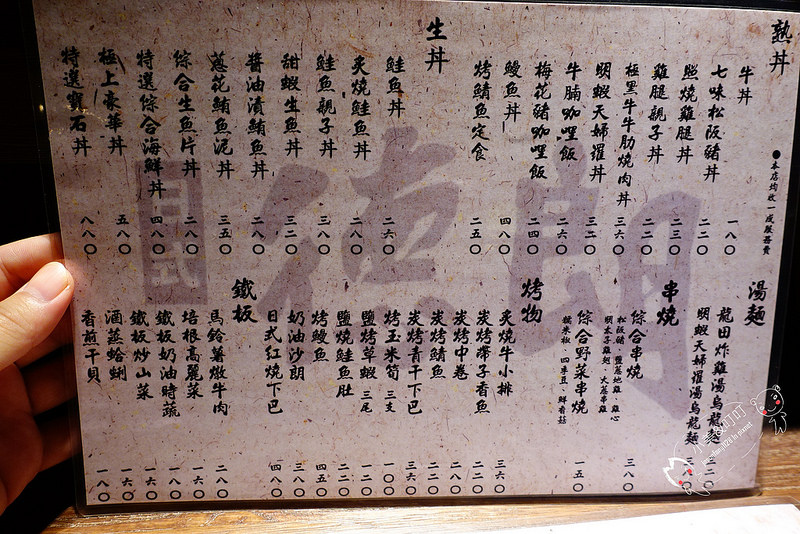 熟丼
●本店均收一成服務費
牛丼 一八〇
七味松阪豬丼 二二〇
照燒雞腿丼 二三〇
雞腿親子丼 二二〇
極黑牛牛肋燒肉丼 三六〇
明蝦天婦羅丼 三二〇
牛腩咖哩飯 二六〇
梅花豬咖哩飯 二四〇
鰻魚丼 四八〇
烤鯖魚定食 二五〇
生丼
鮭魚丼 二六〇
炙燒鮭魚丼 二八〇
鮭魚親子丼 三八〇
甜蝦生魚丼 三二〇
醬油漬鮪魚丼 二八〇
蔥花鮪魚泥丼 三五〇
綜合生魚片丼 二八〇
特選綜合海鮮丼 四八〇
極上豪華丼 五八〇
特選寶石丼 八八〇
湯麵
龍田炸雞湯烏龍麵 二二〇
明蝦天婦羅湯烏龍麵 三六〇
串燒
綜合串燒 三八〇
松板豬、鹽蔥地雞、雞心
明太子雞翅、大蔥串雞
綜合野菜串燒 一五〇
糯米椒、四季豆、鮮香菇
烤物
炙燒牛小排 三六〇
炭烤帶子香魚 二二〇
炭烤中卷 二八〇
炭烤鯖魚 二二〇
炭烤青干下巴 三六〇
烤玉米筍 三支 一〇〇
鹽烤草蝦 三尾 一二〇
鹽燒鮭魚肚 二二〇
烤鰻魚 四五〇
奶油沙朗 三八〇
日式紅燒下巴 四八〇
鐵板
馬鈴薯燉牛肉 二八〇
培根高麗菜 一六〇
鐵板奶油時蔬 一八〇
鐵板炒山菜 一六〇
酒蒸蛤蜊 一六〇
香煎干貝 一八〇
日式
德朗